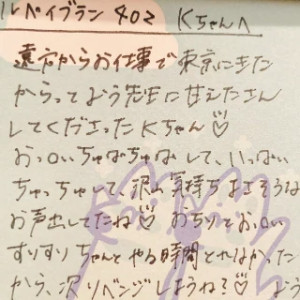 ルペイブラン 402 Kちゃんへ
遠方からお仕事で東京にきた
からってよう先生に甘えたさん
してくださったKちゃん♡
おっぱいちゅぱちゅぱして、いっぱい
ちゅっちゅして、沢山気持ちよさそうな
お声出してたね♡ おちりとおっぱい
すりすりちゃんとやる時間とれなかった
から、次リベンジしようね?♡ よう